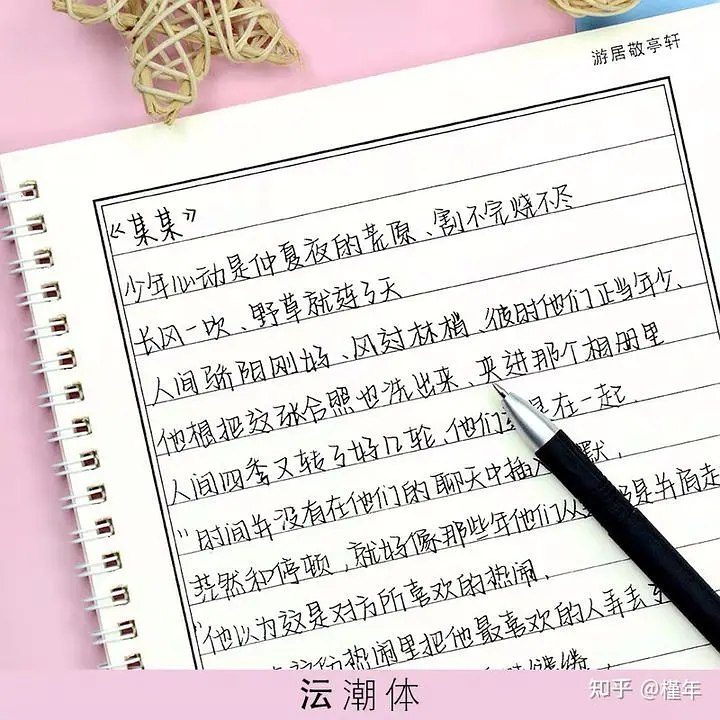 游居敬亭轩
《某某》
少年心动是仲夏夜的荒原、割不完烧不尽
长风一吹、野草就连了天
人间骄阳刚好、风过林梢、彼时他们正当年少、
他想把这张合照也洗出来、夹进那个相册里
人间四季又转了好几轮,他们 在一起.
"时间并没有在他们的聊天中插 默,
茫然和停顿,就好像那些年他们从 是并肩走
"他以为这是对方所喜欢的热闹,
热闹里把他最喜欢的人弄丢
沄潮体
知乎 @槿年